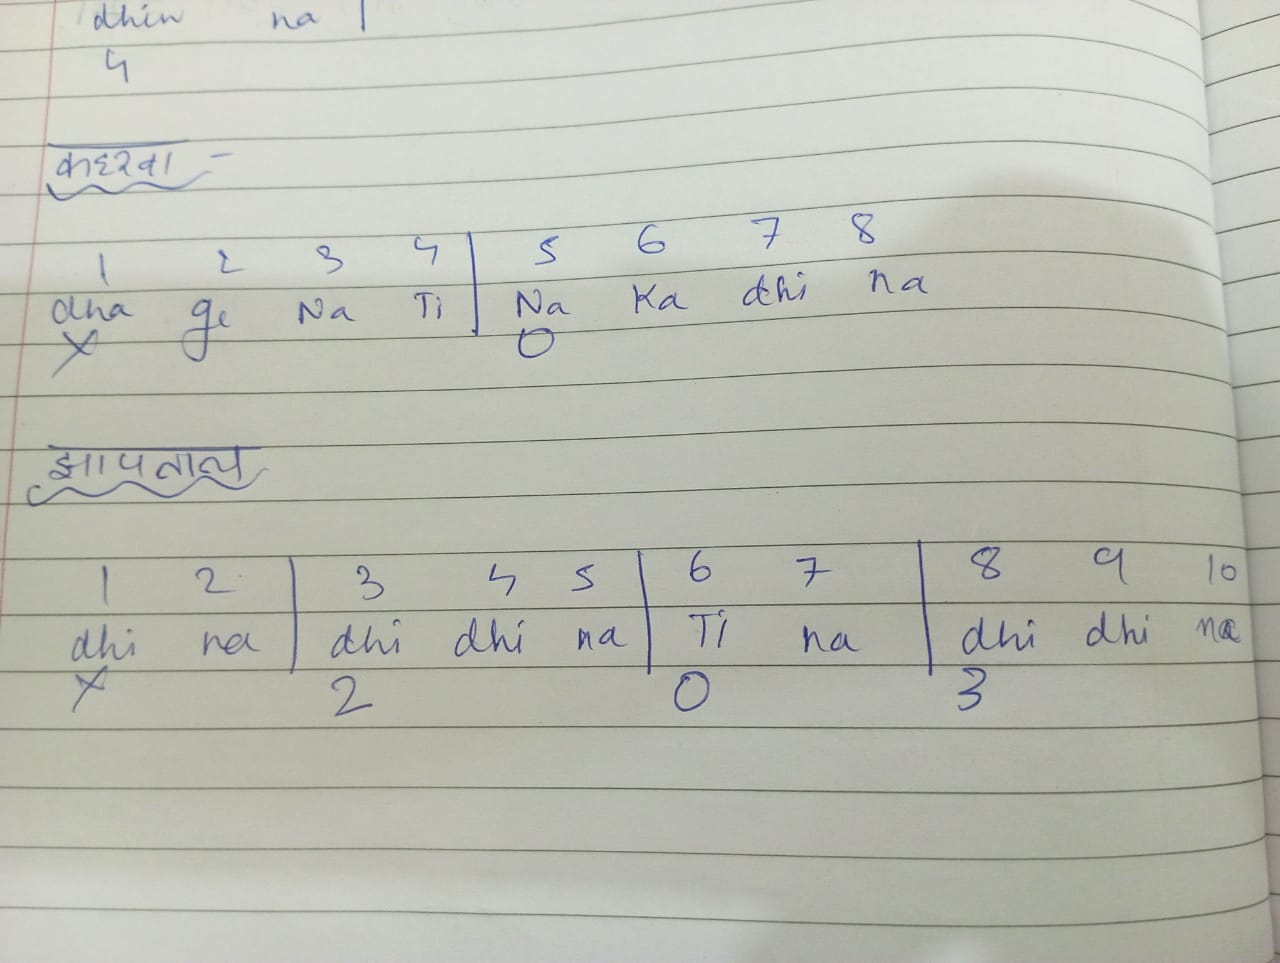 dhin na |
4
कहरवा -
1 2 3 4 | 5 6 7 8
dha ge Na Ti | Na Ka dhi na
X 0
झापताल
1 2 | 3 4 5 | 6 7 | 8 9 10
dhi na | dhi dhi na | Ti na | dhi dhi na
X 2 0 3